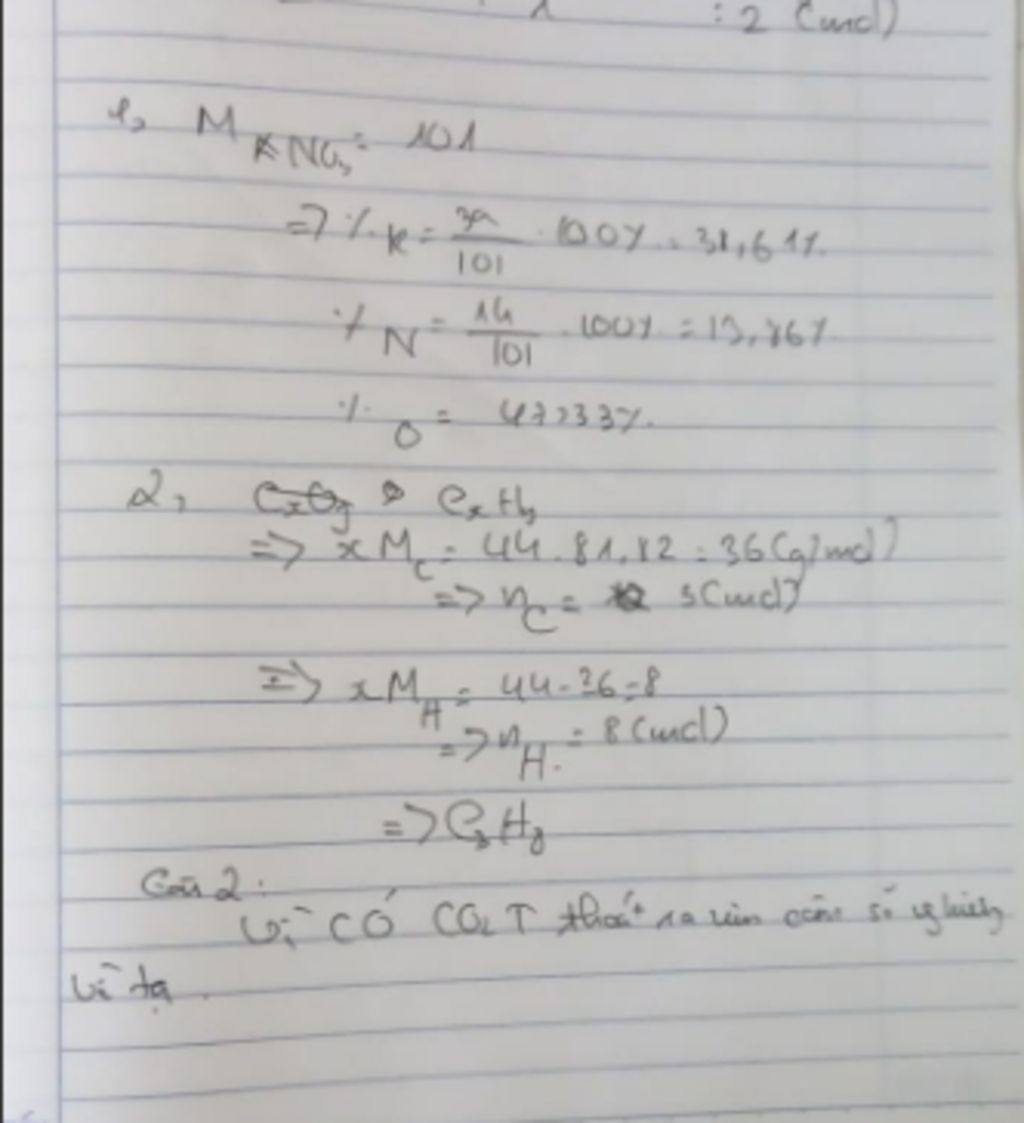 : 2 (mol)
1, M KNO3 = 101
=> % K = 39/101 . 100% = 38,61%
% N = 14/101 . 100% = 13,86%
% O = 47,33%.
2, CxOy CxHy
=> x MC = 44 . 81,82 = 36 (g/mol)
=> nC = 3 (mol)
=> x MH = 44 - 36 = 8
=> nH = 8 (mol)
=> C3H8
Câu 2:
Vì CÓ CO2 ↑ thoát ra nên cân sẽ nghiêng
về